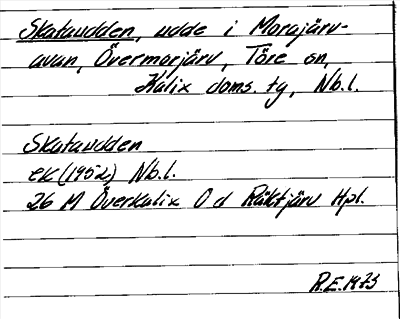 Skataudden, udde i Morajärv-
avan, Övermorjärv, Töre sn,
Kalix doms. tg, Nb.l.
Skataudden
ek (1952) Nb.l.
26 M Överkalix O d Räktjärv Hpl.
R.E. 1973